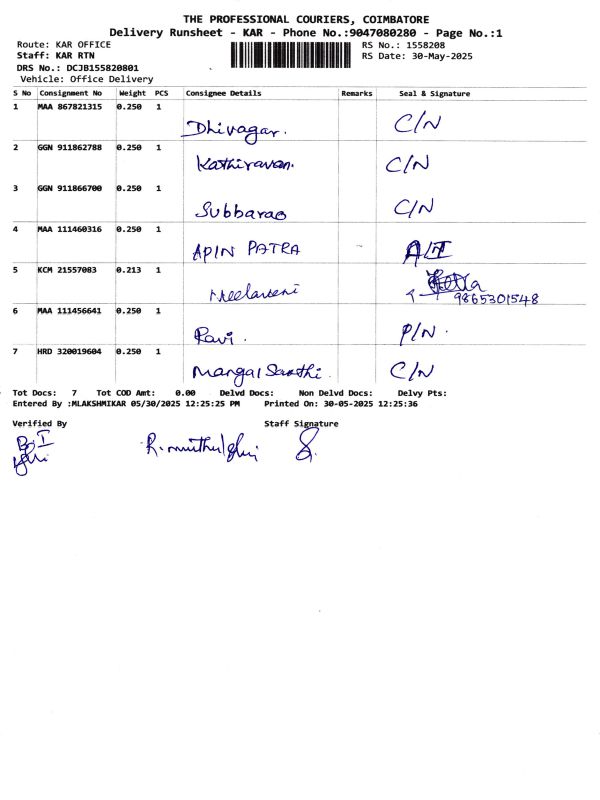 THE PROFESSIONAL COURIERS, COIMBATORE
Delivery Runsheet - KAR - Phone No.:9047080280 - Page No.:1
Route: KAR OFFICE RS No.: 1558208
Staff: KAR RTN RS Date: 30-May-2025
DRS No.: DCJB155820801
Vehicle: Office Delivery
S No Consignment No Weight PCS Consignee Details Remarks Seal & Signature
1 MAA 867821315 0.250 1
Dhivagar. C/N
2 GGN 911862788 0.250 1
Kathiravan. C/N
3 GGN 911866700 0.250 1
Subbarao C/N
4 MAA 111460316 0.250 1
APIN PATRA
5 KCM 21557083 0.213 1
Neelaveni
9865301548
6 MAA 111456641 0.250 1
Ravi. P/N.
7 HRD 320019604 0.250 1
Mangal Sarathi. C/N
Tot Docs: 7 Tot COD Amt: 0.00 Delvd Docs: Non Delvd Docs: Delvy Pts:
Entered By :MLAKSHMIKAR 05/30/2025 12:25:25 PM Printed On: 30-05-2025 12:25:36
Verified By Staff Signature